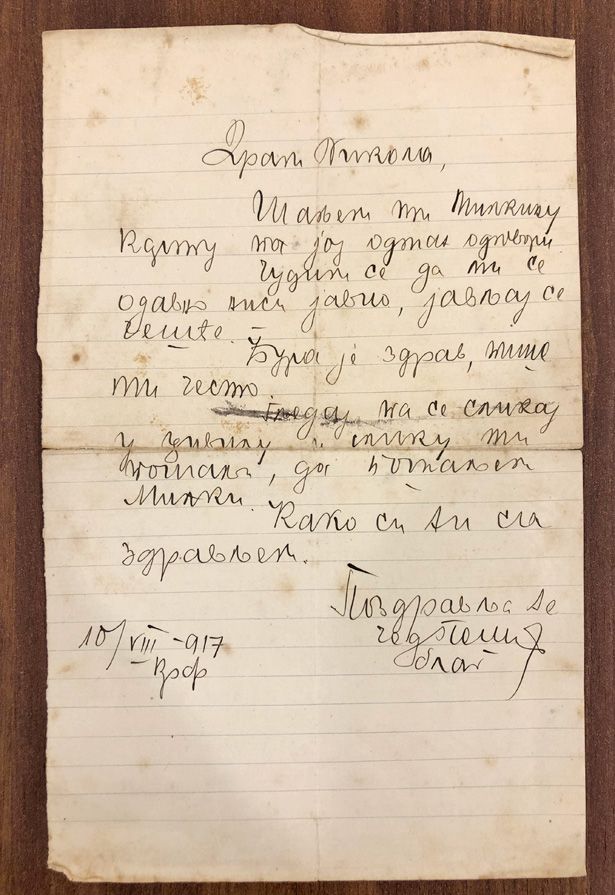 Драги Никола,
Шаљем ти Милкину
карту па јој одмах одговори.
Чудим се да ми се
одавно ниси јавио, јављај се
чешће.
Ђура је здрав, пише
ти често.
Гледај па се сликај
у цивилу и слику ми
пошаљи, да пошаљем
Милки.
Како си ти са
здрављем.
Поздравља те
брат
10/VIII-917
Крф